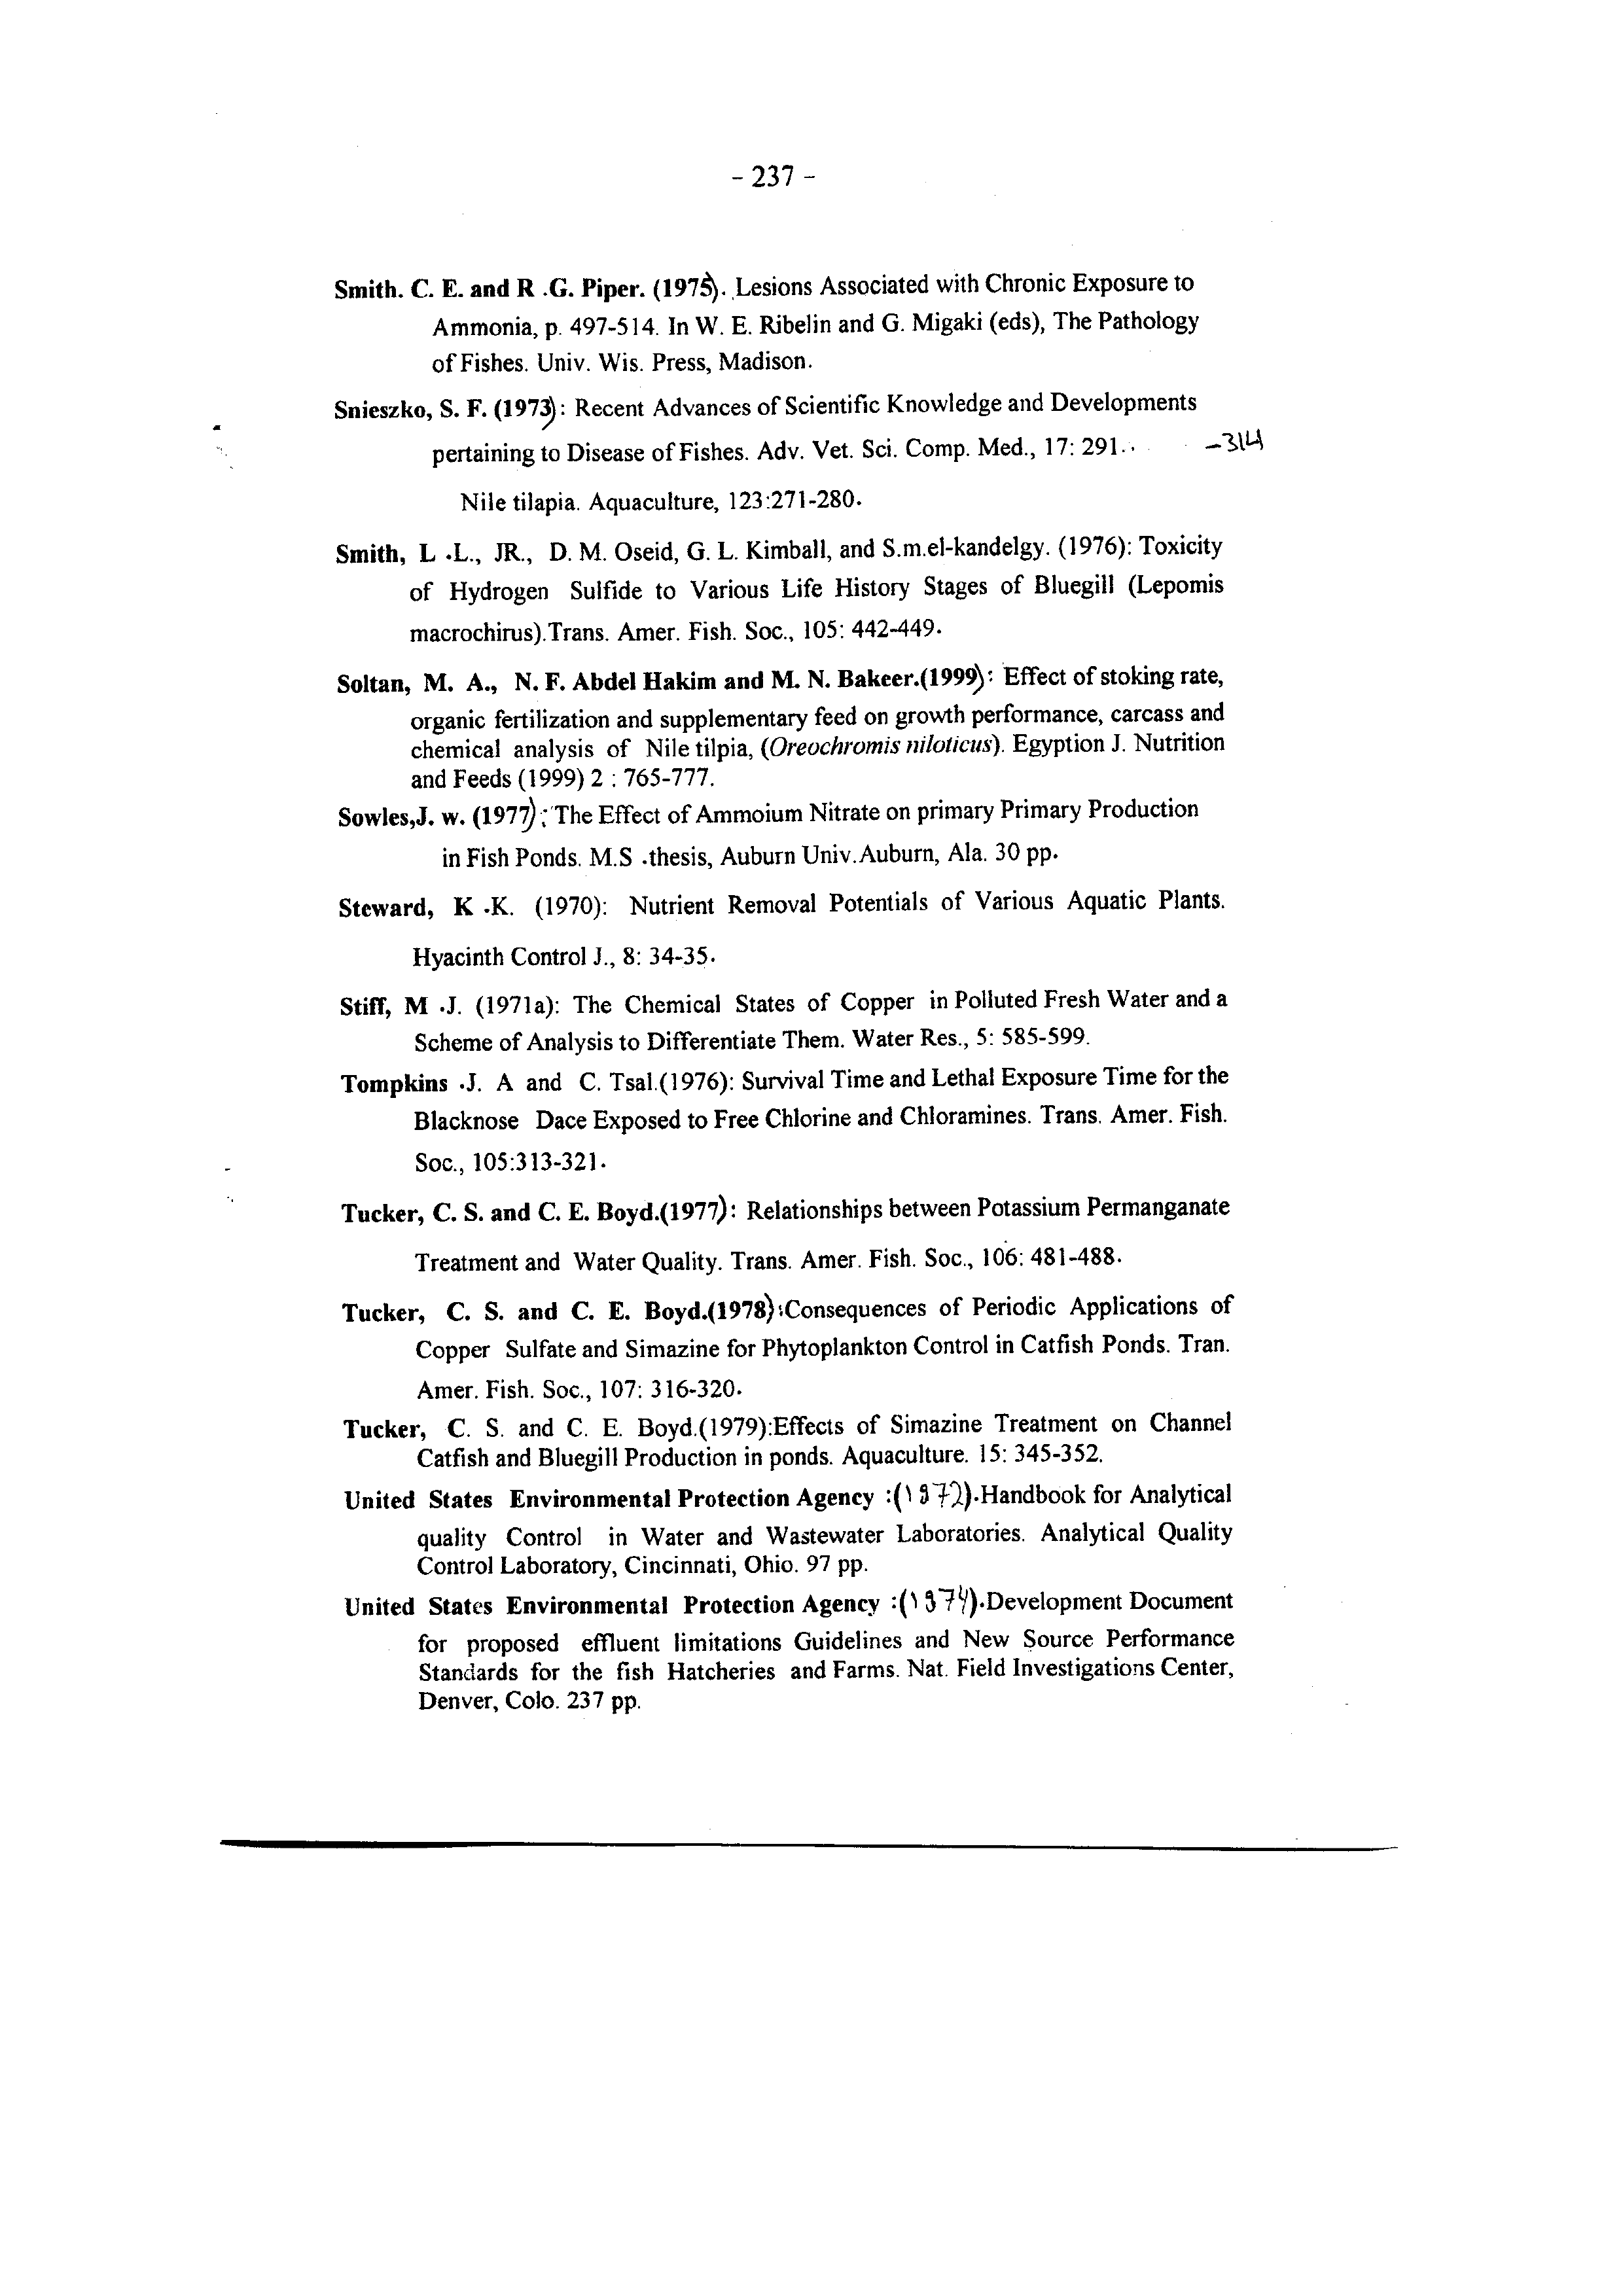 - 237 -
Smith. C. E. and R .G. Piper. (1975). Lesions Associated with Chronic Exposure to
Ammonia, p. 497-514. In W. E. Ribelin and G. Migaki (eds), The Pathology
of Fishes. Univ. Wis. Press, Madison.
Snieszko, S. F. (1973): Recent Advances of Scientific Knowledge and Developments
pertaining to Disease of Fishes. Adv. Vet. Sci. Comp. Med., 17: 291.. -314
Nile tilapia. Aquaculture, 123:271-280.
Smith, L .L., JR., D. M. Oseid, G. L. Kimball, and S.m.el-kandelgy. (1976): Toxicity
of Hydrogen Sulfide to Various Life History Stages of Bluegill (Lepomis
macrochirus).Trans. Amer. Fish. Soc., 105: 442-449.
Soltan, M. A., N. F. Abdel Hakim and M. N. Bakeer.(1999): Effect of stoking rate,
organic fertilization and supplementary feed on growth performance, carcass and
chemical analysis of Nile tilpia, (Oreochromis niloticus). Egyption J. Nutrition
and Feeds (1999) 2 : 765-777.
Sowles,J. w. (1977): The Effect of Ammoium Nitrate on primary Primary Production
in Fish Ponds. M.S .thesis, Auburn Univ.Auburn, Ala. 30 pp.
Steward, K .K. (1970): Nutrient Removal Potentials of Various Aquatic Plants.
Hyacinth Control J., 8: 34-35.
Stiff, M .J. (1971a): The Chemical States of Copper in Polluted Fresh Water and a
Scheme of Analysis to Differentiate Them. Water Res., 5: 585-599.
Tompkins .J. A and C. Tsal.(1976): Survival Time and Lethal Exposure Time for the
Blacknose Dace Exposed to Free Chlorine and Chloramines. Trans. Amer. Fish.
Soc., 105:313-321.
Tucker, C. S. and C. E. Boyd.(1977): Relationships between Potassium Permanganate
Treatment and Water Quality. Trans. Amer. Fish. Soc., 106: 481-488.
Tucker, C. S. and C. E. Boyd.(1978):Consequences of Periodic Applications of
Copper Sulfate and Simazine for Phytoplankton Control in Catfish Ponds. Tran.
Amer. Fish. Soc., 107: 316-320.
Tucker, C. S. and C. E. Boyd.(1979):Effects of Simazine Treatment on Channel
Catfish and Bluegill Production in ponds. Aquaculture. 15: 345-352.
United States Environmental Protection Agency :(1972).Handbook for Analytical
quality Control in Water and Wastewater Laboratories. Analytical Quality
Control Laboratory, Cincinnati, Ohio. 97 pp.
United States Environmental Protection Agency :(1974).Development Document
for proposed effluent limitations Guidelines and New Source Performance
Standards for the fish Hatcheries and Farms. Nat. Field Investigations Center,
Denver, Colo. 237 pp.